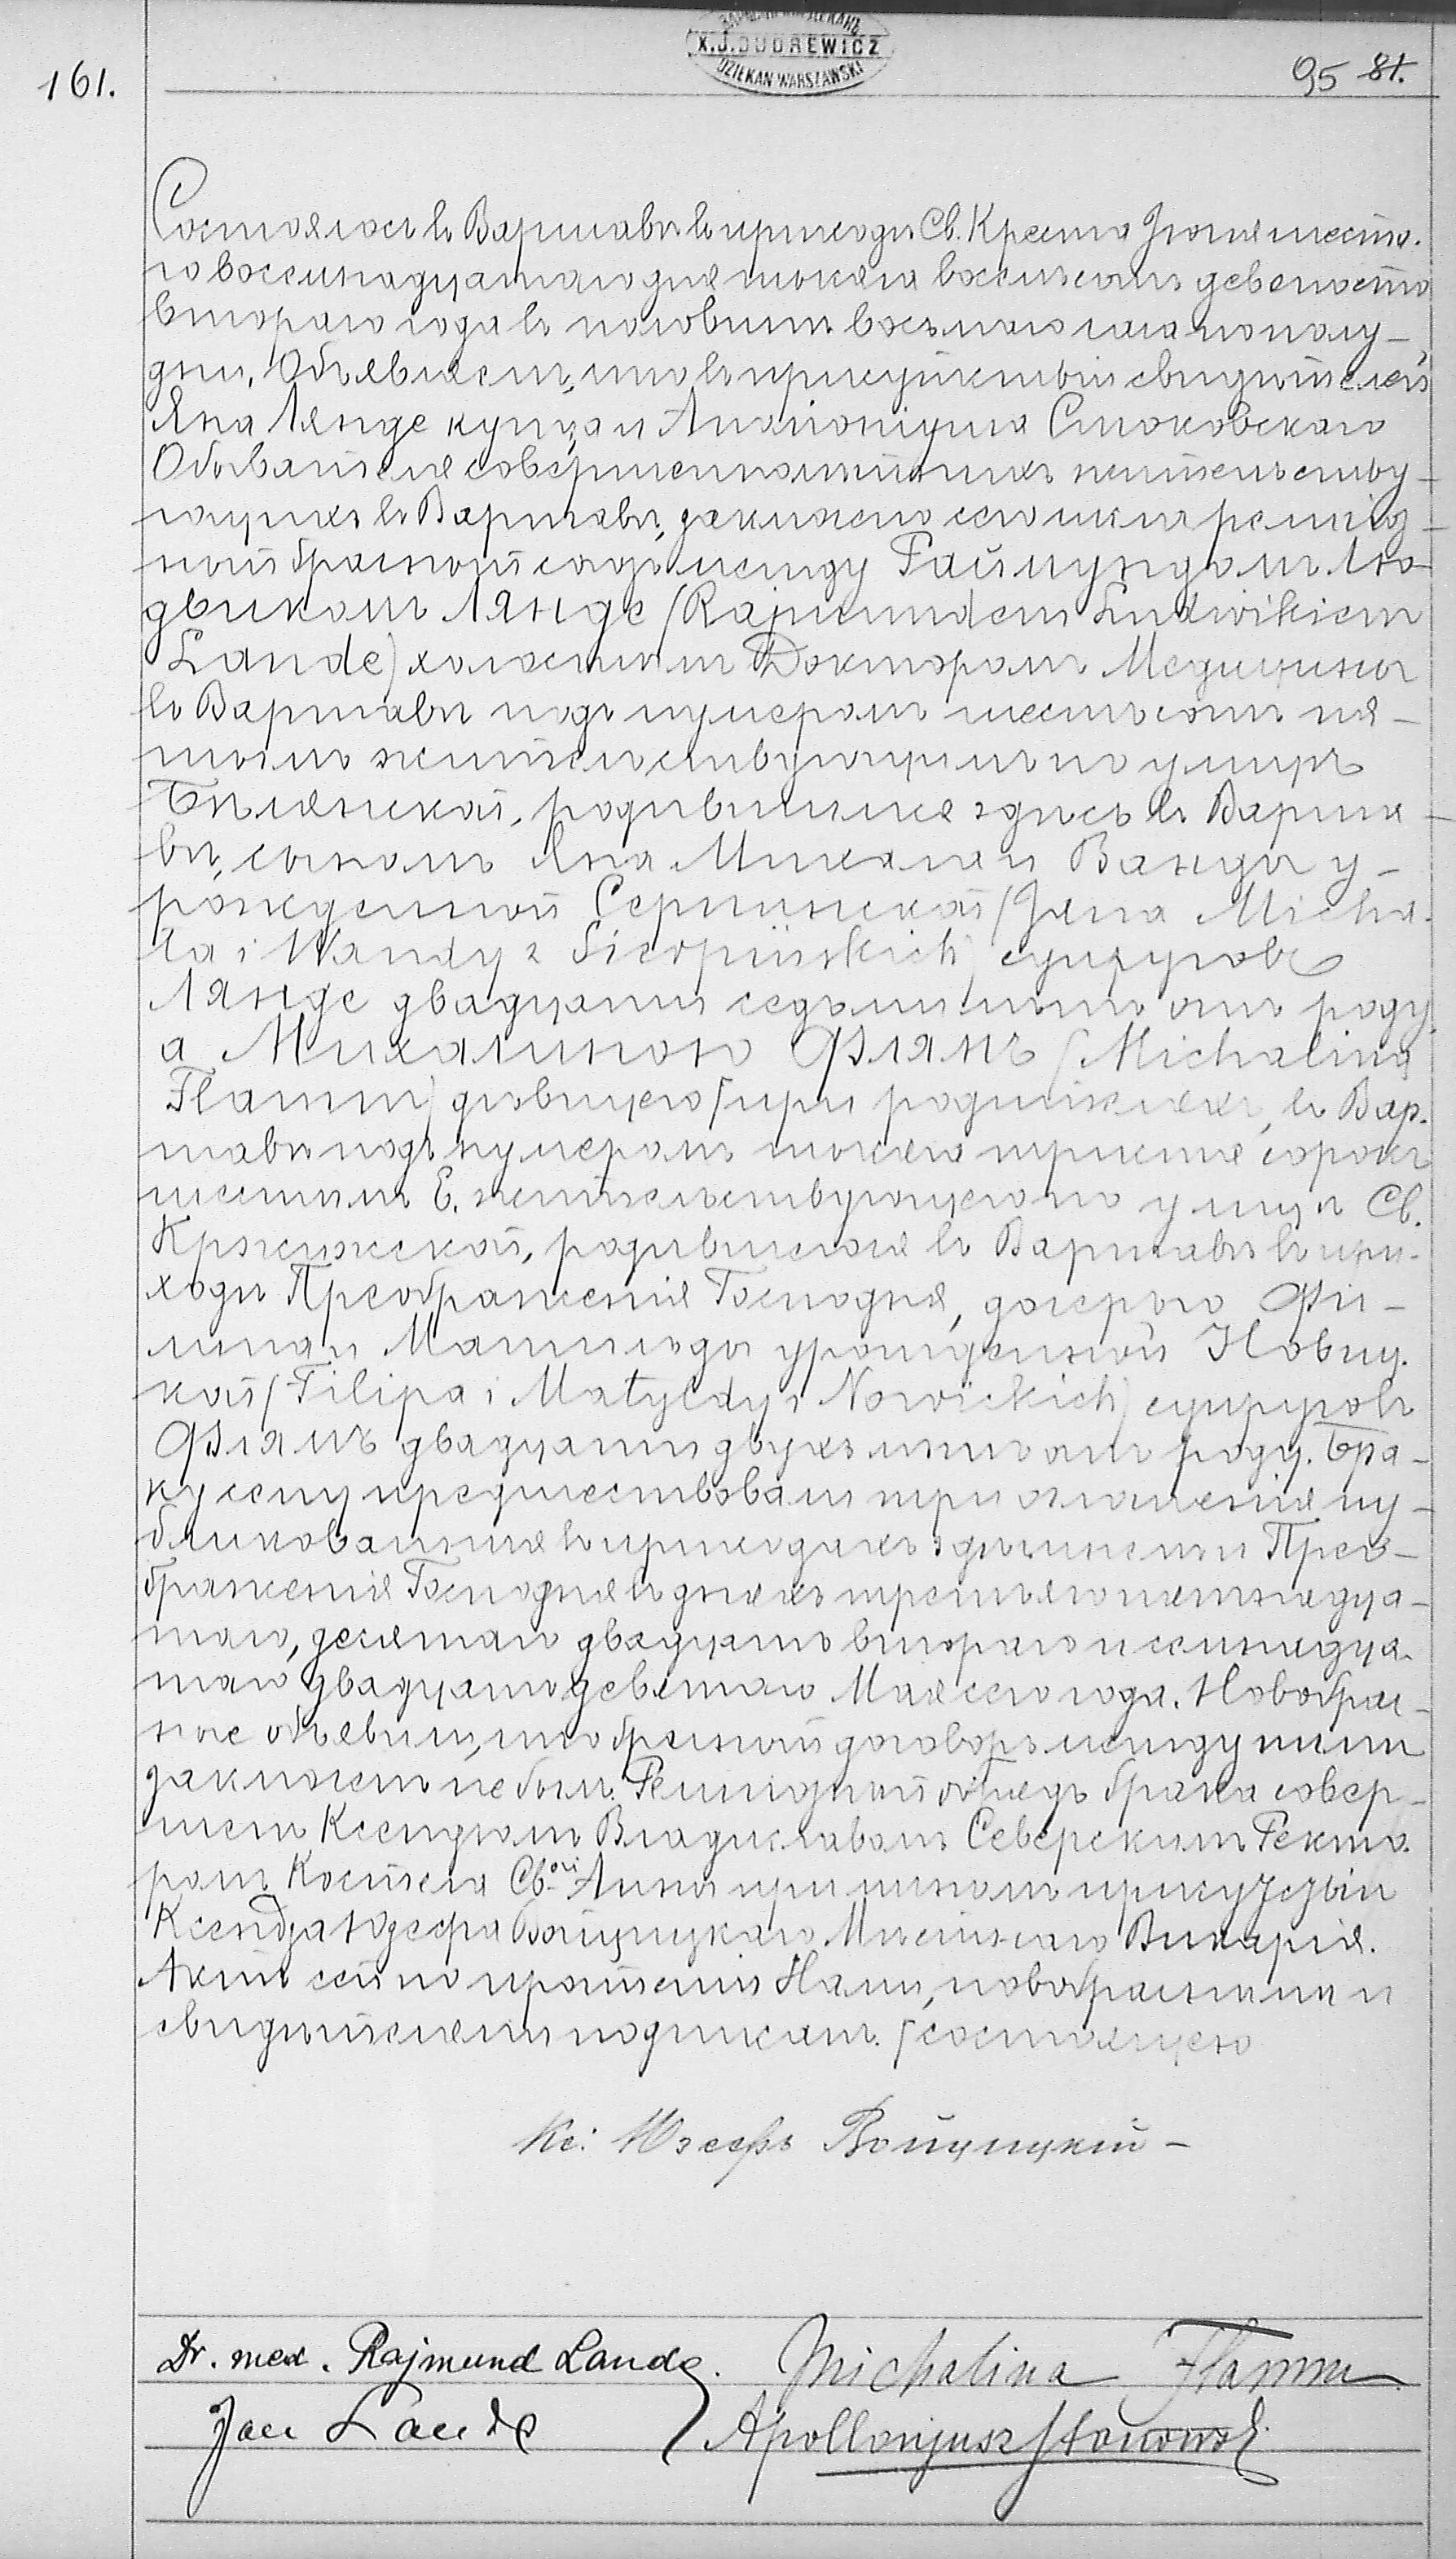 X.J.DUDREWICZ
DZIEKAN WARSZAWSKI
161.
95 81.
Состоялось въ Варшавѣ въ приходѣ Св. Креста Іюня шеста-
го восемнадцатаго дня тысяча восемьсотъ девяносто
втораго года въ половинѣ восьмаго часа по полу-
дни. Объявляемъ, что въ присутствіи свидѣтелей
Яна Лянде купца и Аполлонiуша Стоковскаго
Обывателя совершеннолѣтнихъ жительству-
ющихъ въ Варшавѣ, заключенъ сего числа религіоз-
ный брачный союзъ между Раймундомъ Лю-
двикомъ Лянде (Rajmundem Ludwikiem
Lande) холостымъ Докторомъ Медицины
въ Варшавѣ подъ нумеромъ шестьсотъ пя-
тымъ жительствующимъ по улицѣ
Бѣлянской, родившимся здѣсь въ Варша-
вѣ, сыномъ Яна Михала и Ванды у-
рожденной Серпинской (Jana Micha-
ła i Wandy z Sierpińskich) супруговъ
Лянде двадцати седьми лѣтъ отъ роду
а Михалиною Флямъ (Michalina
Flamm) дѣвицею при родителяхъ, въ Вар-
шавѣ подъ нумеромъ тысяча триста сорокъ
шестымъ Е. жительствующею по улицѣ Св.
Кржижской, родившеюся въ Варшавѣ въ при-
ходѣ Преображенія Господня, дочерью Фи-
липа и Матильды урожденной Новиц-
кой (Filipa i Matyldy z Nowickich) супруговъ
Флямъ двадцати двухъ лѣтъ отъ роду. Бра-
ку сему предшествовали три оглашенія пу-
бликованныя въ приходахъ здѣшнемъ и Прео-
браженія Господня въ дняхъ третьяго пятнадца-
таго, десятаго двадцать втораго и семнадца-
таго двадцать девятаго Мая сего года. Новобрач-
ные объявили, что брачный договоръ между ними
заключенъ не былъ. Религіозный обрядъ брака совер-
шенъ Ксендзомъ Владиславомъ Северскимъ Ректо-
ромъ Костела Св-ой Анны при личномъ присутствіи
Ксендза Юзефа Войцицкаго Мѣстнаго Викарія.
Актъ сей по прочтеніи Нами, новобрачными и
свидѣтелями подписанъ. состоящею
Кс: Юзефъ Войцицкій -
Dr. med. Rajmund Lande. Michalina Flamm
Jan Lande Apollonjusz Stokowski